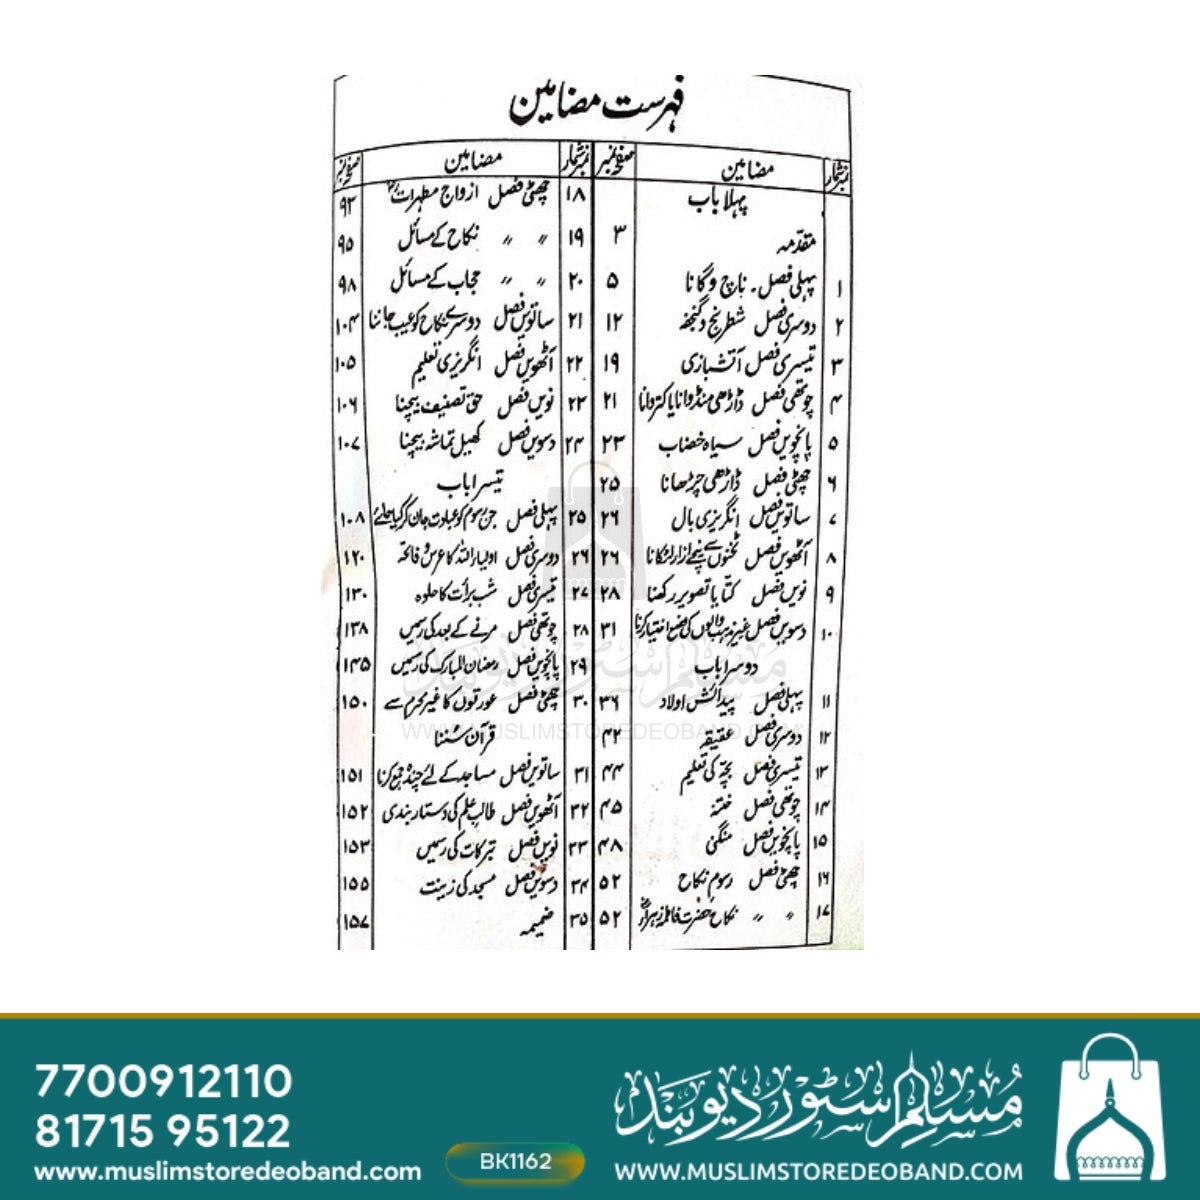 فہرست مضامین
نمبر شمار مضامین صفحہ نمبر
پہلا باب
مقدمہ ۳
۱ پہلی فصل ۔ ناچ و گانا ۵
۲ دوسری فصل شطرنج و گنجفہ ۱۲
۳ تیسری فصل آتشبازی ۱۹
۴ چوتھی فصل ڈاڑھی منڈوانا یا کتروانا ۲۱
۵ پانچویں فصل سیاہ خضاب ۲۳
۶ چھٹی فصل ڈاڑھی چڑھانا ۲۵
۷ ساتویں فصل انگریزی بال ۲۶
۸ آٹھویں فصل ٹخنوں سے نیچے ازار لٹکانا ۲۶
۹ نویں فصل کتا یا تصویر رکھنا ۲۸
۱۰ دسویں فصل غیر مذہب والوں کی وضع اختیار کرنا ۳۱
دوسرا باب
۱۱ پہلی فصل پیدائش اولاد ۳۶
۱۲ دوسری فصل عقیقہ ۴۲
۱۳ تیسری فصل بچہ کی تعلیم ۴۴
۱۴ چوتھی فصل ختنہ ۴۵
۱۵ پانچویں فصل منگنی ۴۸
۱۶ چھٹی فصل رسوم نکاح ۵۲
۱۷ " " نکاح حضرت فاطمہ زہراؓ ۵۲
نمبر شمار مضامین صفحہ نمبر
۱۸ چھٹی فصل ازواج مطہرات ۹۳
۱۹ " " نکاح کے مسائل ۹۵
۲۰ " " حجاب کے مسائل ۹۸
۲۱ ساتویں فصل دوسرے نکاح کو عیب جاننا ۱۰۴
۲۲ آٹھویں فصل انگریزی تعلیم ۱۰۵
۲۳ نویں فصل حق تصنیف بیچنا ۱۰۶
۲۴ دسویں فصل کھیل تماشہ بیچنا ۱۰۷
تیسرا باب
۲۵ پہلی فصل جن رسوم کو عبادت جان کر کیا جائے ۱۰۸
۲۶ دوسری فصل اولیاء اللہ کا عرس و فاتحہ ۱۲۰
۲۷ تیسری فصل شب برأت کا حلوہ ۱۳۰
۲۸ چوتھی فصل مرنے کے بعد کی رسمیں ۱۳۸
۲۹ پانچویں فصل رمضان المبارک کی رسمیں ۱۴۵
۳۰ چھٹی فصل عورتوں کا غیر محرم سے ۱۵۰
قرآن سننا
۳۱ ساتویں فصل مساجد کے لئے چندہ جمع کرنا ۱۵۱
۳۲ آٹھویں فصل طالب علم کی دستار بندی ۱۵۲
۳۳ نویں فصل تبرکات کی رسمیں ۱۵۳
۳۴ دسویں فصل مسجد کی زینت ۱۵۵
۳۵ ضمیمہ ۱۵۷
مسلم سٹور دیوبند
WWW.MUSLIMSTOREDEOBAND.COM
7700912110
81715 95122
www.muslimstoredeoband.com
BK1162
مسلم سٹور دیوبند
WWW.MUSLIMSTOREDEOBAND.COM